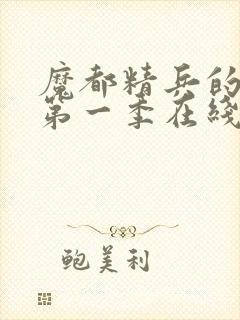 魔都精兵的
第一季在线
鲍美利